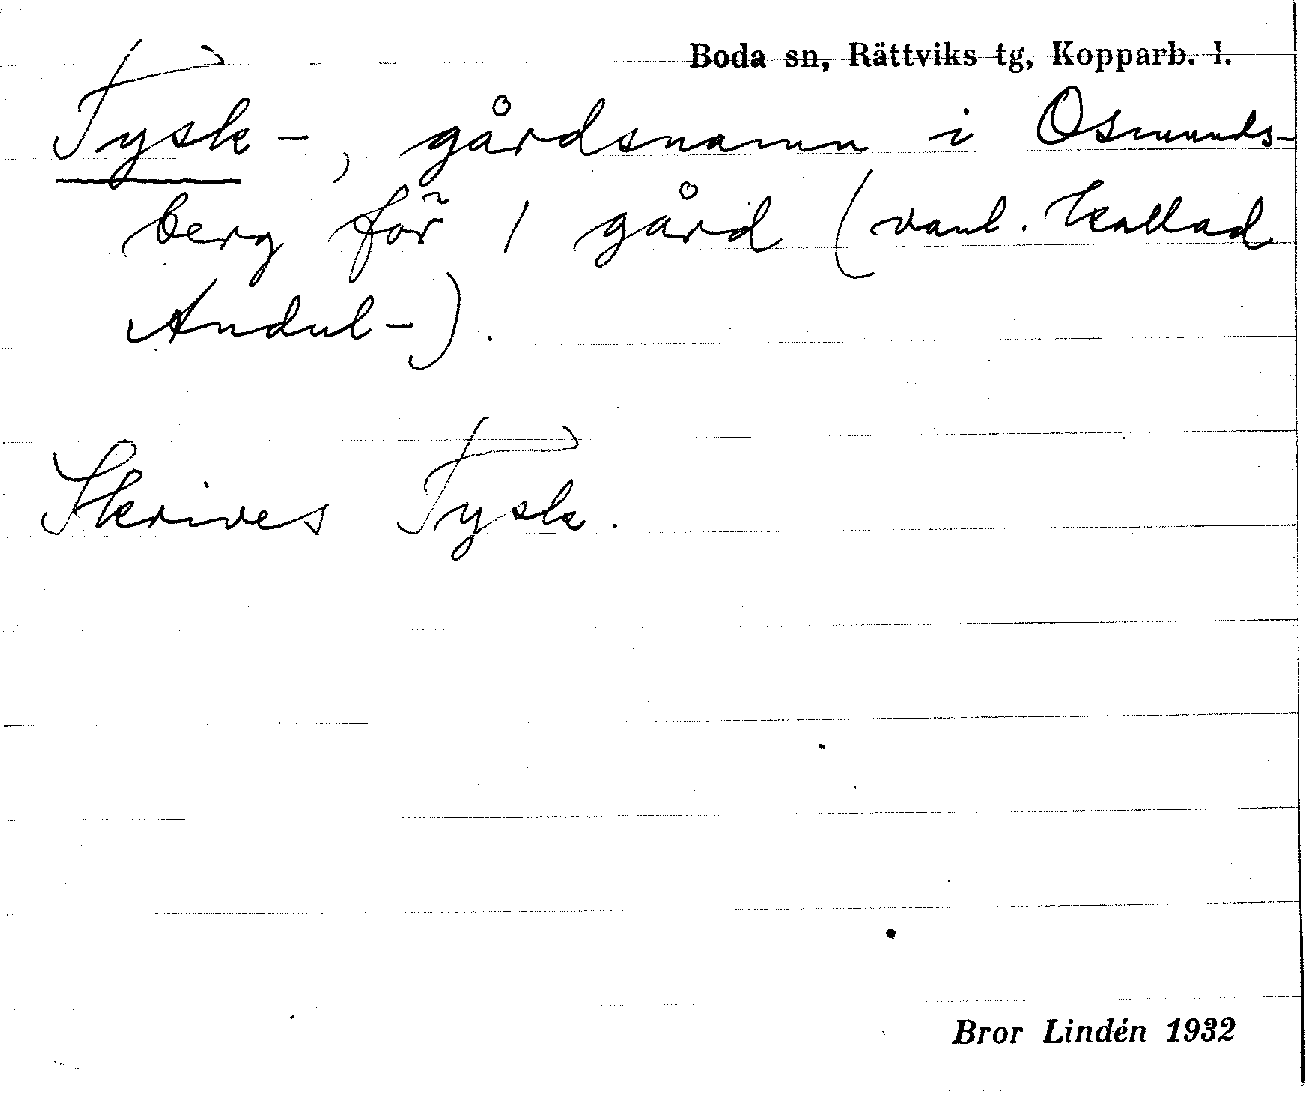 Boda sn, Rättviks tg, Kopparb. l.
Tysk-, gårdsnamn i Osmunds-
berg för 1 gård (vanl. kallad
Andul-).
Skrives Tysk.
Bror Lindén 1932